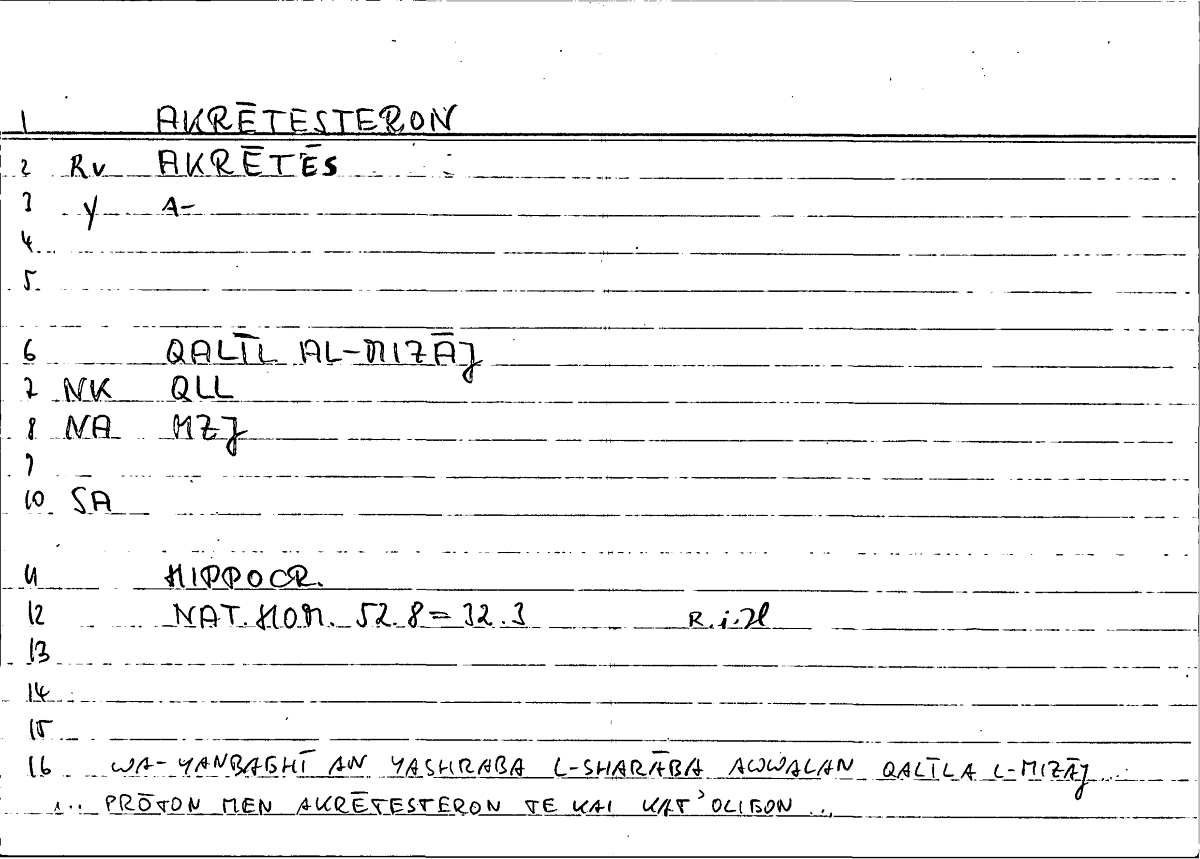 1 AKRĒTESTERON
2 Rv AKRĒTĒS
3 Y A-
4
5
6 QALĪL AL-MIZĀJ
7 NK QLL
8 NA MZJ
9
10 SA
11 HIPPOCR.
12 NAT. HOM. 52.8 = 32.3
13
14
15
16 WA-YANBAGHĪ AN YASHRABA L-SHARĀBA AWWALAN QALĪLA L-MIZĀJ
... PRŌTON MEN AKRĒTESTERON TE KAI KAT'OLIGON ...